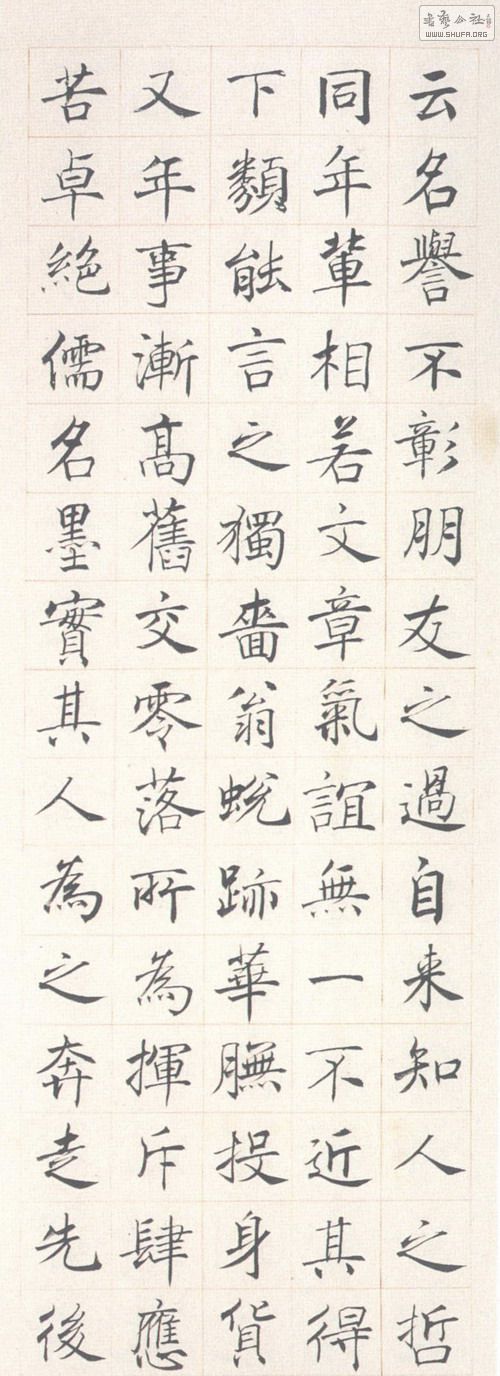 云名譽不彰朋友之過自来知人之哲
同年輩相若文章氣誼無一不近其得
下類能言之獨嗇翁蛻跡華膴投身貨
又年事漸高舊交零落所為揮斥肆應
苦卓絕儒名墨實其人為之奔走先後
書藝公社
WWW.SHUFA.ORG